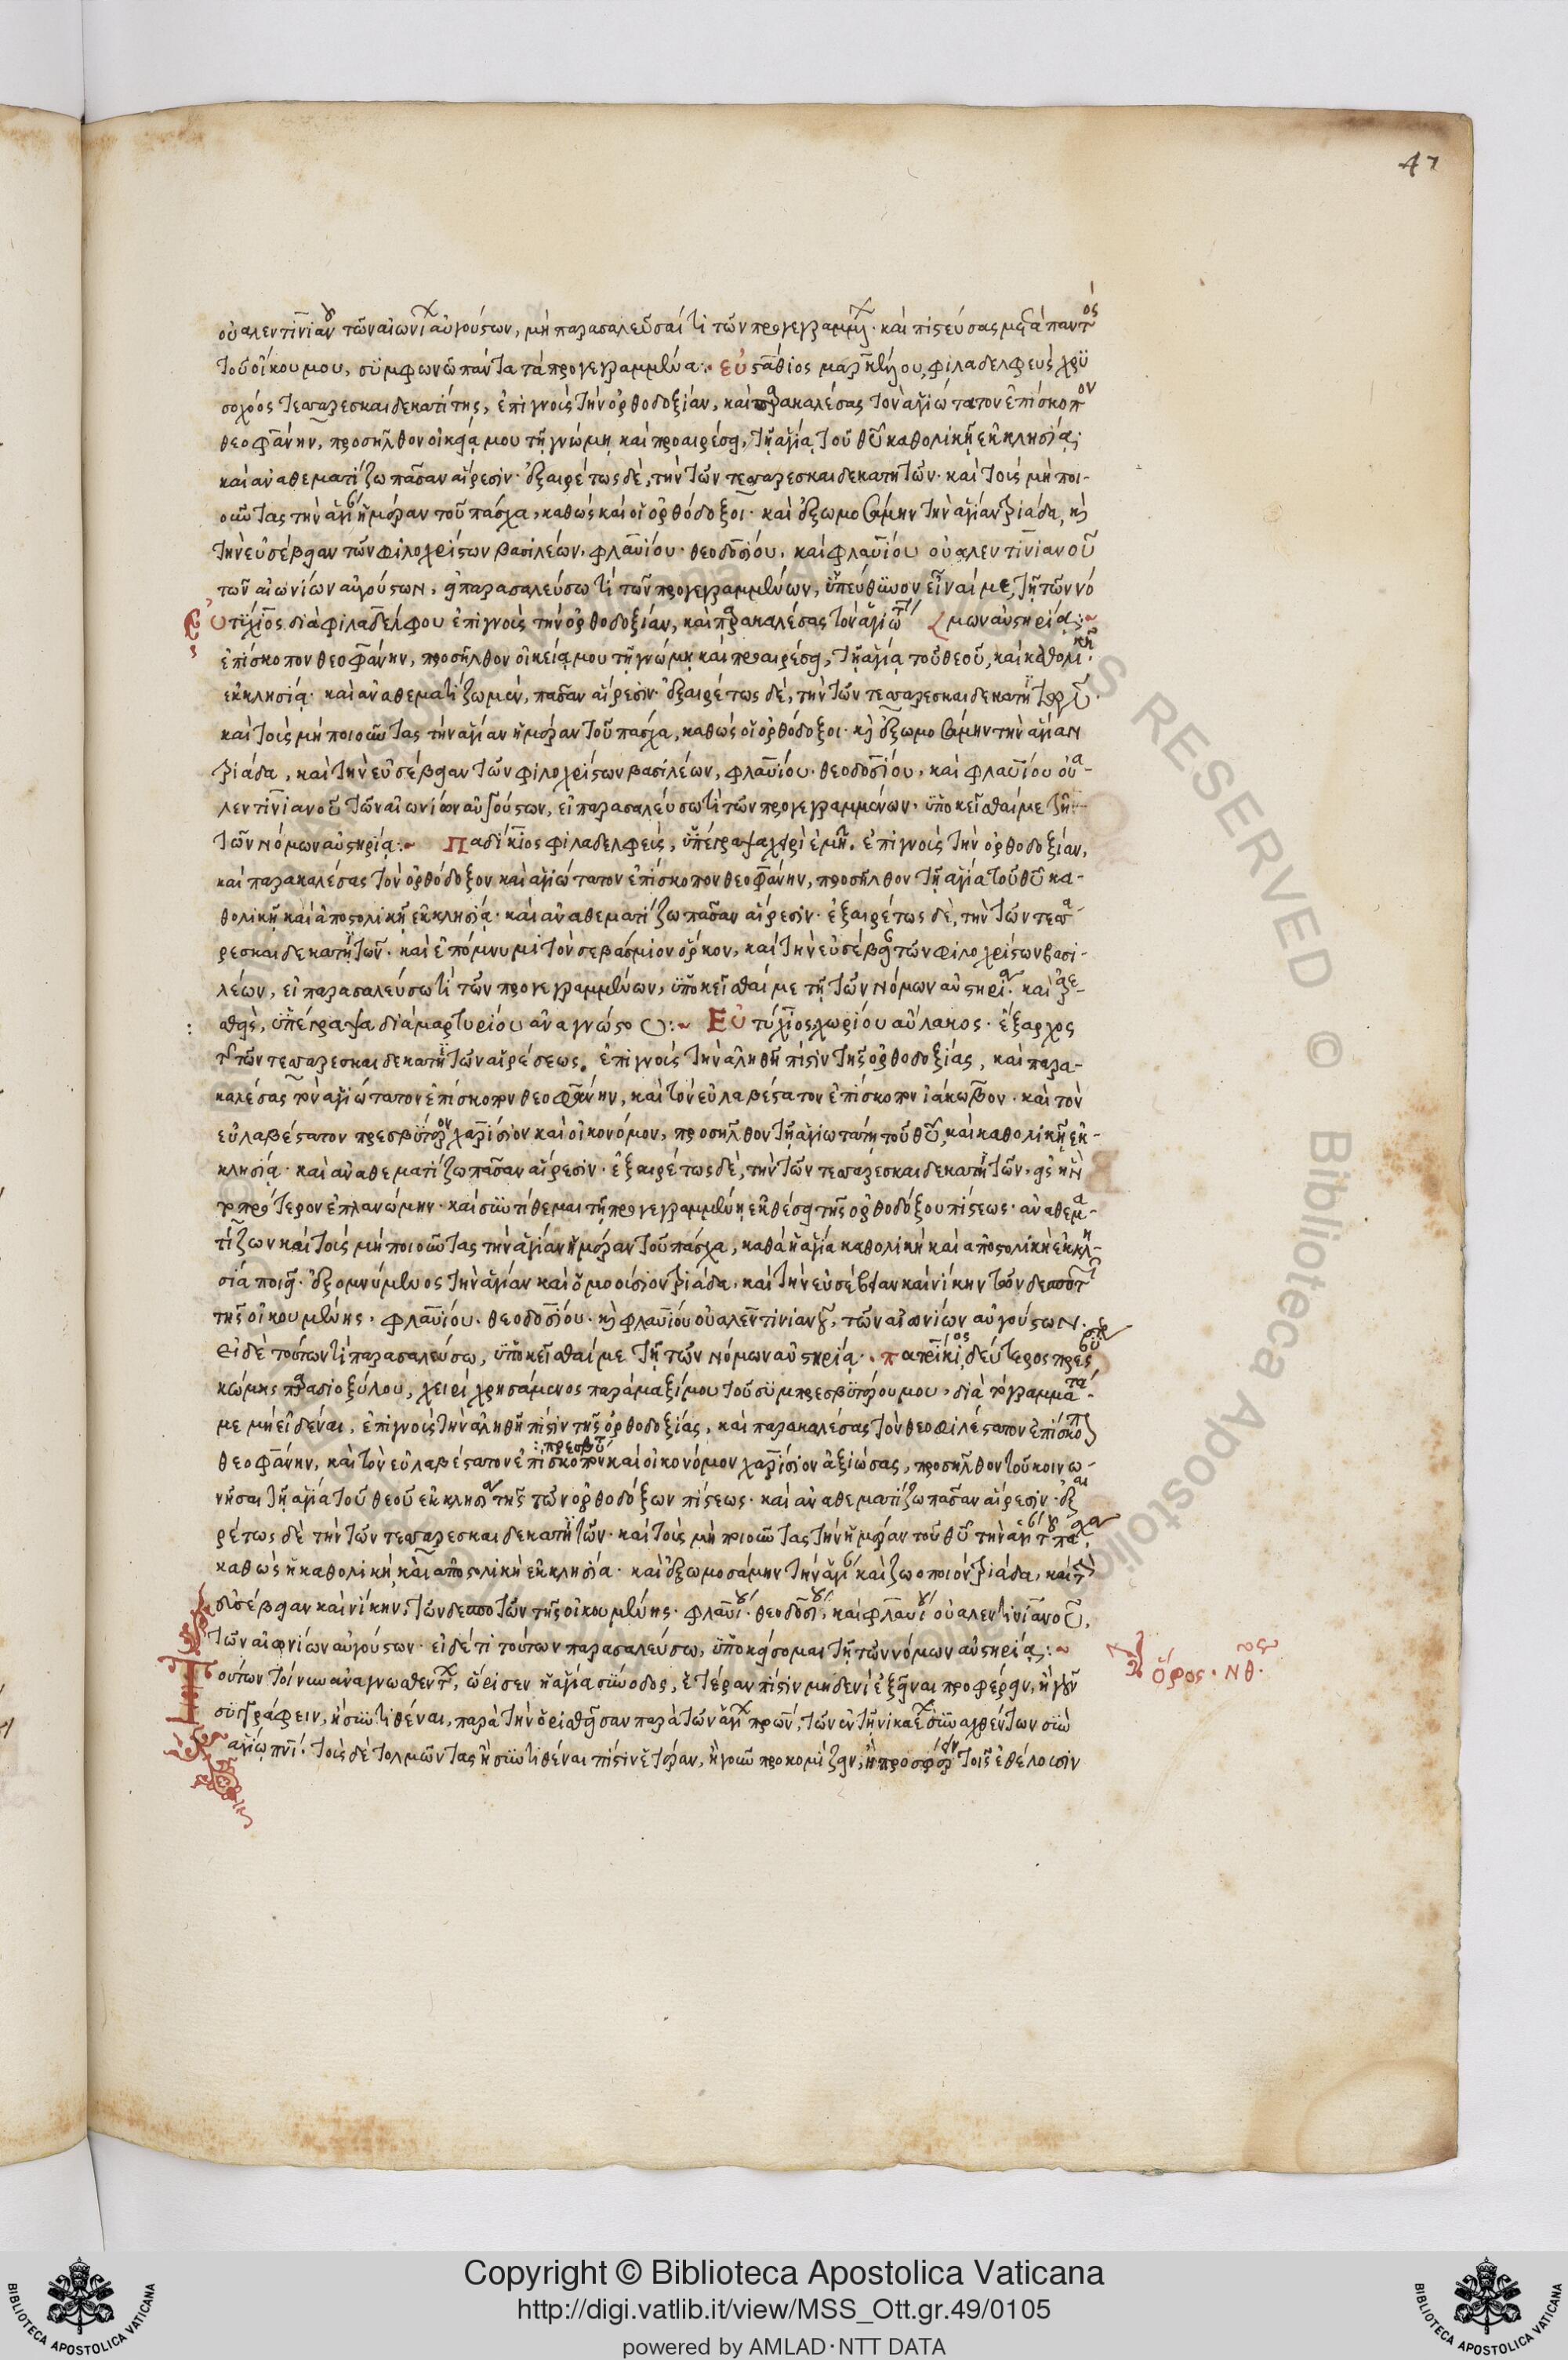 47
οὐαλεντινιανοῦ τῶν αἰωνίων αὐγούστων, μὴ παρασαλεῦσαί τι τῶν προγεγραμμένων· καὶ πιστεύσας μετὰ παντὸς
τοῦ οἴκου μου, συμφωνῶ πάντα τὰ προγεγραμμένα:· εὐστάθιος μαρκέλλου, φιλαδελφεὺς χρυ
σοχόος τεσσαρεσκαιδεκατίτης, ἐπιγνοὺς τὴν ὀρθοδοξίαν, καὶ παρακαλέσας τὸν ἁγιώτατον ἐπίσκοπον
θεοφάνην, προσῆλθον οἰκείᾳ μου τῇ γνώμῃ καὶ προαιρέσει, τῇ ἁγίᾳ τοῦ θυ καθολικῇ ἐκκλησίᾳ·
καὶ ἀναθεματίζω πᾶσαν αἵρεσιν· ἐξαιρέτως δὲ, τὴν τῶν τεσσαρεσκαιδεκατητῶν· καὶ τοὺς μὴ ποι-
οῦντας τὴν ἁγίαν ἡμέραν τοῦ πάσχα, καθὼς καὶ οἱ ὀρθόδοξοι· καὶ ἐξωμοσάμην τὴν ἁγίαν τριάδα, καὶ
τὴν εὐσέβειαν τῶν φιλοχρίστων βασιλέων, φλαυίου θεοδοσίου, καὶ φλαυίου οὐαλεντινιανοῦ
τῶν αἰωνίων αὐγούστων, εἰ παρασαλεύσω τὶ τῶν προγεγραμμένων, ὑπεύθυνον εἶναί με, τῇ τῶν νό
Εὐτύχιος διὰ φιλαδέλφου ἐπιγνοὺς τὴν ὀρθοδοξίαν, καὶ παρακαλέσας τὸν ἁγιώτατον μων αὐστηρίᾳ:~
ἐπίσκοπον θεοφάνην, προσῆλθον οἰκείᾳ μου τῇ γνώμῃ καὶ προαιρέσει, τῇ ἁγίᾳ τοῦ θεοῦ, καὶ καθολικῇ
ἐκκλησίᾳ· καὶ ἀναθεματίζω μὲν, πᾶσαν αἵρεσιν· ἐξαιρέτως δὲ, τὴν τῶν τεσσαρεσκαιδεκατητῶν·
καὶ τοὺς μὴ ποιοῦντας τὴν ἁγίαν ἡμέραν τοῦ πάσχα, καθὼς οἱ ὀρθόδοξοι· καὶ ἐξωμοσάμην τὴν ἁγίαν
τριάδα, καὶ τὴν εὐσέβειαν τῶν φιλοχρίστων βασιλέων, φλαυίου θεοδοσίου, καὶ φλαυίου οὐα-
λεντινιανοῦ τῶν αἰωνίων αὐγούστων, εἰ παρασαλεύσω τὶ τῶν προγεγραμμένων, ὑποκεῖσθαί με τῇ
τῶν νόμων αὐστηρίᾳ:~ Παδίκιος φιλαδελφεὺς, ὑπέγραψα χειρὶ ἐμῇ. ἐπιγνοὺς τὴν ὀρθοδοξίαν,
καὶ παρακαλέσας τὸν ὀρθόδοξον καὶ ἁγιώτατον ἐπίσκοπον θεοφάνην, προσῆλθον τῇ ἁγίᾳ τοῦ θυ κα-
θολικῇ καὶ ἀποστολικῇ ἐκκλησίᾳ· καὶ ἀναθεματίζω πᾶσαν αἵρεσιν· ἐξαιρέτως δὲ, τὴν τῶν τεσσα
ρεσκαιδεκατητῶν· καὶ ἐπόμνυμι τὸν σεβάσμιον ὅρκον, καὶ τὴν εὐσέβειαν τῶν φιλοχρίστων βασι-
λέων, εἰ παρασαλεύσω τὶ τῶν προγεγραμμένων, ὑποκεῖσθαί με τῇ τῶν νόμων αὐστηρίᾳ· καὶ ἀρε-
σθεὶς, ὑπέγραψα διὰ μαρτυρίου ἀναγνώστου:~ Εὐτύχιος χωρίου αὔλακος· ἔξαρχος
τῆς τῶν τεσσαρεσκαιδεκατητῶν αἱρέσεως. ἐπιγνοὺς τὴν ἀληθῆ πίστιν τῆς ὀρθοδοξίας, καὶ παρα-
καλέσας τὸν ἁγιώτατον ἐπίσκοπον θεοφάνην, καὶ τὸν εὐλαβέστατον ἐπίσκοπον ἰάκωβον· καὶ τὸν
εὐλαβέστατον πρεσβύτερον χαρίσιον καὶ οἰκονόμον, προσῆλθον τῇ ἁγιωτάτῃ τοῦ θυ, καὶ καθολικῇ ἐκ-
κλησίᾳ· καὶ ἀναθεματίζω πᾶσαν αἵρεσιν· ἐξαιρέτως δὲ, τὴν τῶν τεσσαρεσκαιδεκατητῶν· εἰς ἣν
τὸ πρότερον ἐπλανώμην· καὶ συντίθεμαι τῇ προγεγραμμένῃ ἐκθέσει τῆς ὀρθοδόξου πίστεως· ἀναθεμα-
τίζων καὶ τοὺς μὴ ποιοῦντας τὴν ἁγίαν ἡμέραν τοῦ πάσχα, καθὰ ἡ ἁγία καθολικὴ καὶ ἀποστολικὴ ἐκκλη-
σία ποιεῖ· ἐξομνύμενος τὴν ἁγίαν καὶ ὁμοούσιον τριάδα, καὶ τὴν εὐσέβειαν καὶ νίκην τῶν δεσποτῶν
τῆς οἰκουμένης, φλαυίου θεοδοσίου· καὶ φλαυίου οὐαλεντινιανοῦ, τῶν αἰωνίων αὐγούστων·
Εἰ δὲ τούτων τὶ παρασαλεύσω, ὑποκεῖσθαί με τῇ τῶν νόμων αὐστηρίᾳ·. πατρίκιος δεύτερος πρεσβύτερος
κώμης παρασιοξύλου, χειρὶ χρησάμενος παρὰ μαξίμου τοῦ συμπρεσβυτέρου μου, διὰ τὸ γράμματά
με μὴ εἰδέναι, ἐπιγνοὺς τὴν ἀληθῆ πίστιν τῆς ὀρθοδοξίας, καὶ παρακαλέσας τὸν θεοφιλέστατον ἐπίσκοπον
:πρεσβύτερον
θεοφάνην, καὶ τὸν εὐλαβέστατον ἐπίσκοπον καὶ οἰκονόμον χαρίσιον ἀξιώσας, προσῆλθον τοῦ κοινω-
νῆσαι τῇ ἁγίᾳ τοῦ θεοῦ ἐκκλησίᾳ τῆς τῶν ὀρθοδόξων πίστεως· καὶ ἀναθεματίζω πᾶσαν αἵρεσιν· ἐξαι
ρέτως δὲ τὴν τῶν τεσσαρεσκαιδεκατητῶν· καὶ τοὺς μὴ ποιοῦντας τὴν ἡμέραν τοῦ θυ τὴν ἁγίαν τοῦ πάσχα,
καθὼς ἡ καθολικὴ, καὶ ἀποστολικὴ ἐκκλησία· καὶ ἐξωμοσάμην τὴν ἁγίαν καὶ ζωοποιὸν τριάδα, καὶ τὴν
εὐσέβειαν καὶ νίκην, τῶν δεσποτῶν τῆς οἰκουμένης· φλαυίου θεοδοσίου, καὶ φλαυίου οὐαλεντινιανοῦ,
τῶν αἰωνίων αὐγούστων· εἰ δέ τι τούτων παρασαλεύσω, ὑποκείσομαι τῇ τῶν νόμων αὐστηρίᾳ:~
ὅρος· νθ·
Τούτων τοίνυν ἀναγνωσθέντων, ὥρισεν ἡ ἁγία σύνοδος, ἑτέραν πίστιν μηδενὶ ἐξεῖναι προφέρειν, ἢ γοῦν
συγγράφειν, ἢ συντιθέναι, παρὰ τὴν ὁρισθεῖσαν παρὰ τῶν ἁγίων πρων, τῶν ἐν τῇ νικαέων συναχθέντων σὺν
ἁγίῳ πνι· τοὺς δὲ τολμῶντας ἢ συντιθέναι πίστιν ἑτέραν, ἤγουν προκομίζειν, ἢ προσφέρειν τοῖς ἐθέλουσιν
RESERVED © Biblioteca Apostolica
Copyright © Biblioteca Apostolica Vaticana
http://digi.vatlib.it/view/MSS_Ott.gr.49/0105
powered by AMLAD·NTT DATA
BIBLIOTECA APOSTOLICA VATICANA
BIBLIOTECA APOSTOLICA VATICANA